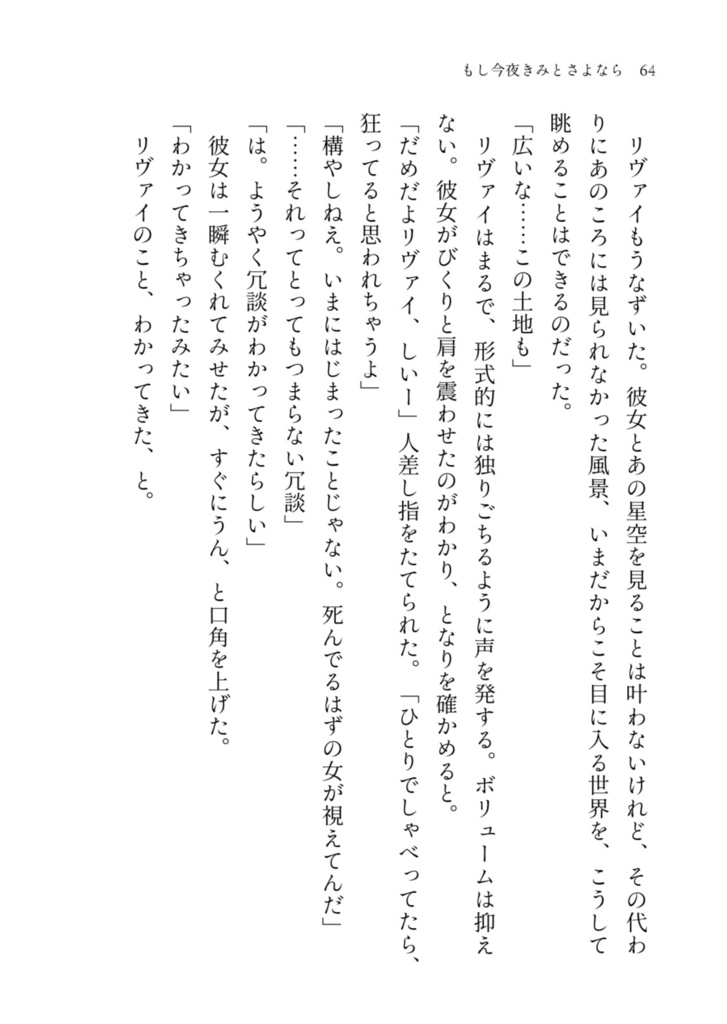 もし今夜きみとさよなら 64
リヴァイもうなずいた。彼女とあの星空を見ることは叶わないけれど、その代わ
りにあのころには見られなかった風景、いまだからこそ目に入る世界を、こうして
眺めることはできるのだった。
「広いな……この土地も」
リヴァイはまるで、形式的には独りごちるように声を発する。ボリュームは抑え
ない。彼女がびくりと肩を震わせたのがわかり、となりを確かめると。
「だめだよリヴァイ、しいー」人差し指をたてられた。「ひとりでしゃべってたら、
狂ってると思われちゃうよ」
「構やしねえ。いまにはじまったことじゃない。死んでるはずの女が視えてんだ」
「……それってとってもつまらない冗談」
「は。ようやく冗談がわかってきたらしい」
彼女は一瞬むくれてみせたが、すぐにうん、と口角を上げた。
「わかってきちゃったみたい」
リヴァイのこと、わかってきた、と。